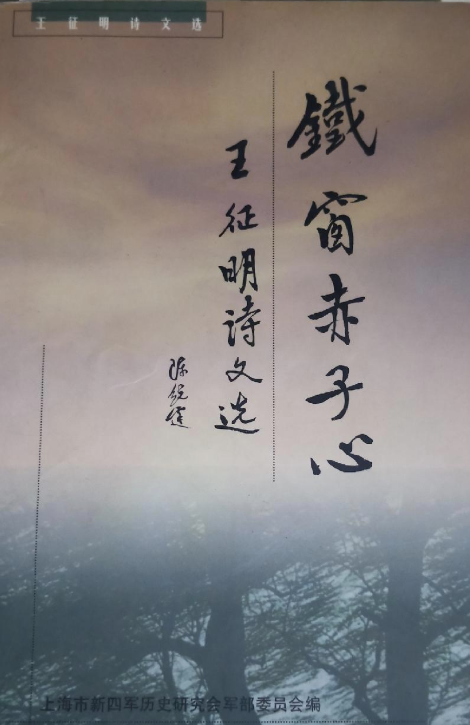 王征明诗文选
鐵窗赤子心
王征明诗文选
陈锐霆
上海市新四军历史研究会军部委员会编